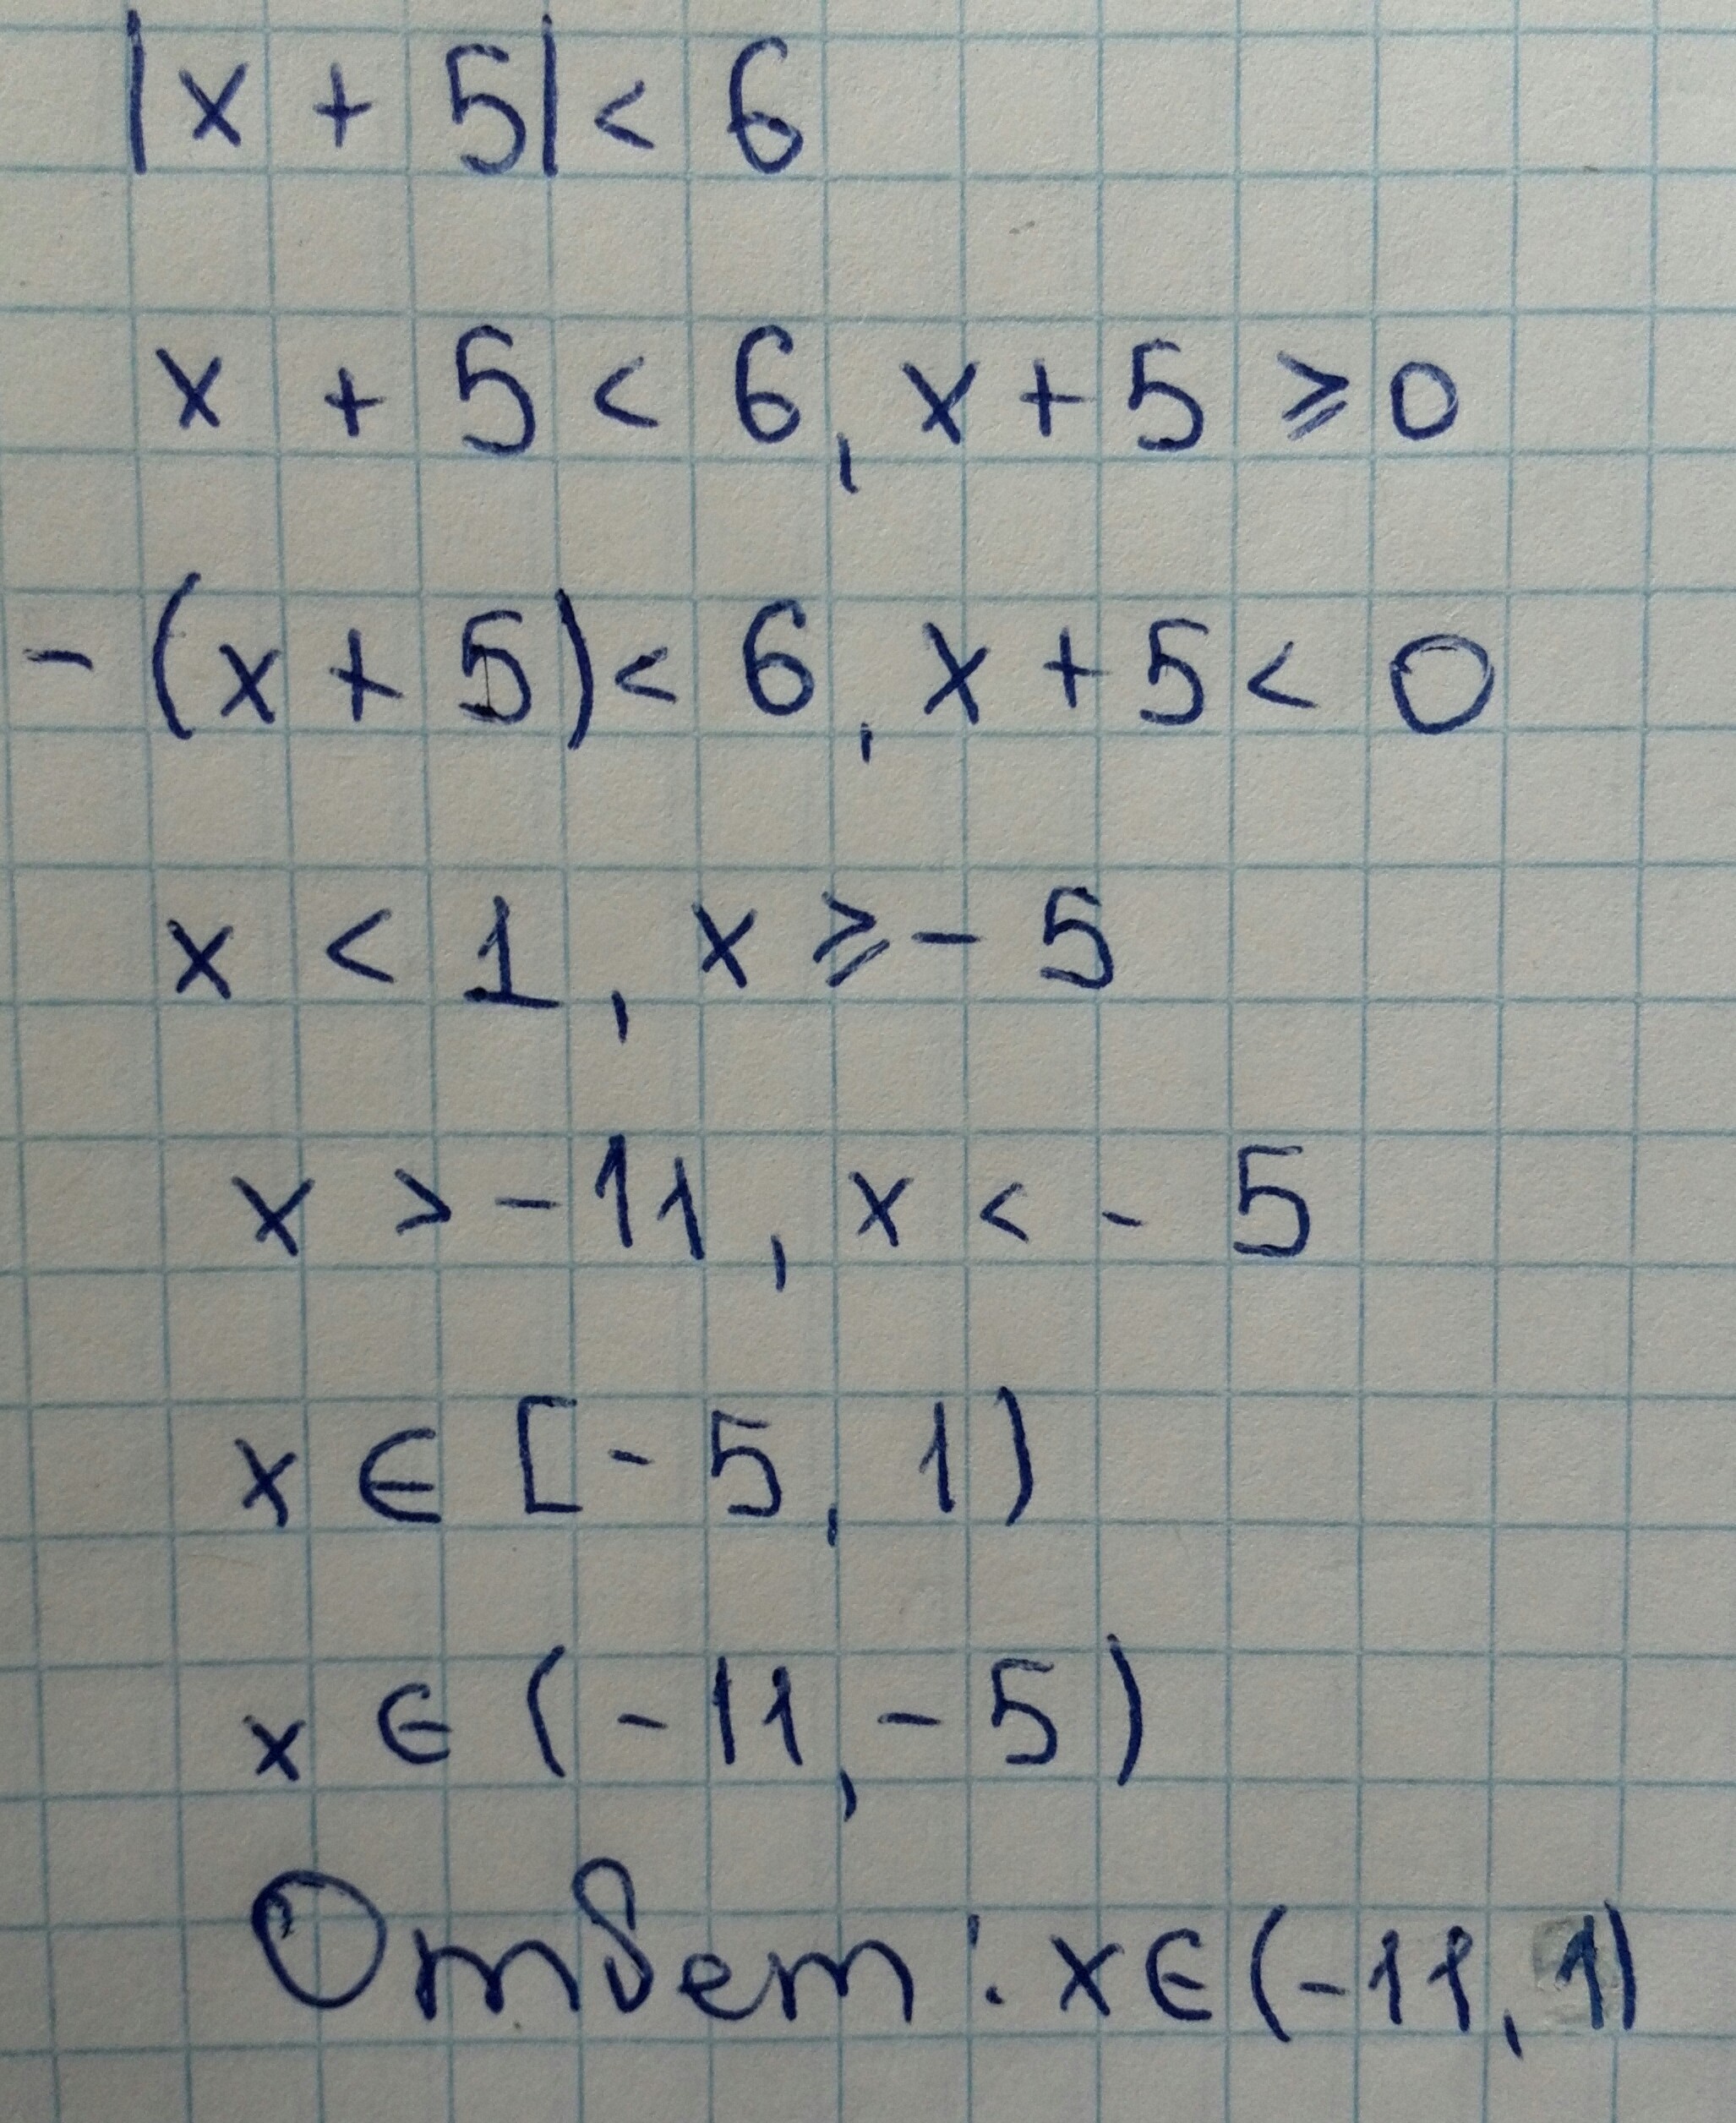 |x + 5| < 6
x + 5 < 6, x + 5 ⩾ 0
- (x + 5) < 6, x + 5 < 0
x < 1, x ⩾ - 5
x > - 11, x < - 5
x ∈ [- 5, 1)
x ∈ (- 11, - 5)
Ответ: x ∈ (- 11, 1)